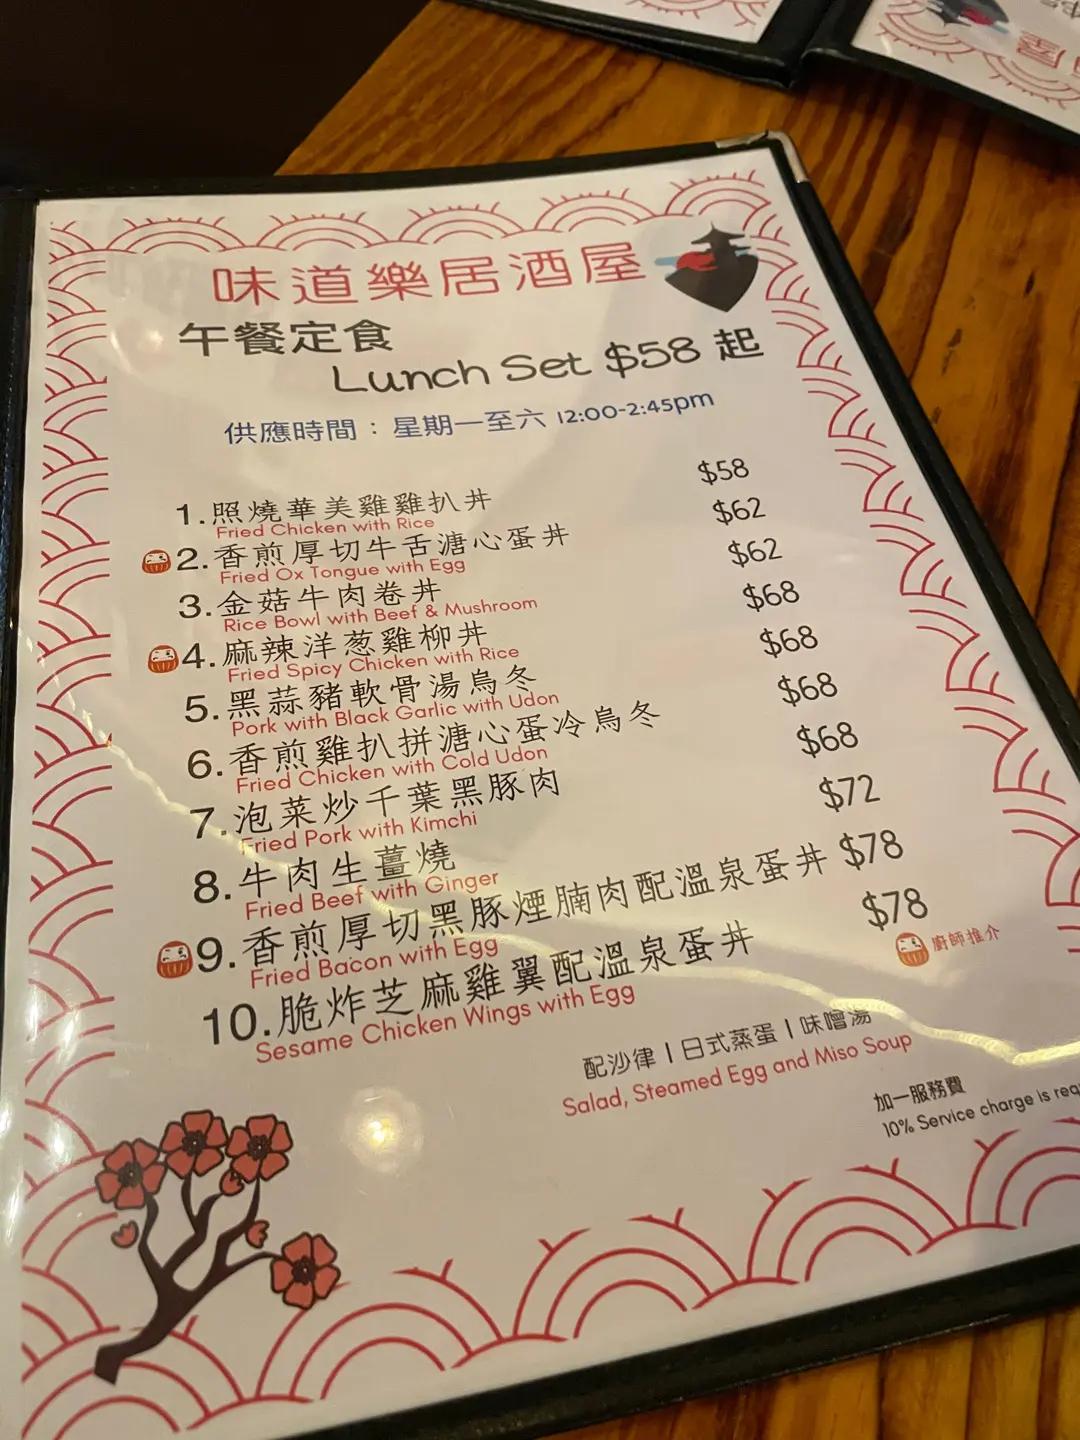 味道樂居酒屋
午餐定食
Lunch Set $58 起
供應時間：星期一至六 12:00-2:45pm
1. 照燒華美雞雞扒丼 $58
Fried Chicken with Rice
2. 香煎厚切牛舌溏心蛋丼 $62
Fried Ox Tongue with Egg
3. 金菇牛肉卷丼 $62
Rice Bowl with Beef & Mushroom
4. 麻辣洋葱雞柳丼 $68
Fried Spicy Chicken with Rice
5. 黑蒜豬軟骨湯烏冬 $68
Pork with Black Garlic with Udon
6. 香煎雞扒拼溏心蛋冷烏冬 $68
Fried Chicken with Cold Udon
7. 泡菜炒千葉黑豚肉 $68
Fried Pork with Kimchi
8. 牛肉生薑燒 $72
Fried Beef with Ginger
9. 香煎厚切黑豚煙腩肉配溫泉蛋丼 $78
Fried Bacon with Egg
10. 脆炸芝麻雞翼配溫泉蛋丼 $78
Sesame Chicken Wings with Egg
廚師推介
配沙律 | 日式蒸蛋 | 味噌湯
Salad, Steamed Egg and Miso Soup
加一服務費
10% Service charge is req